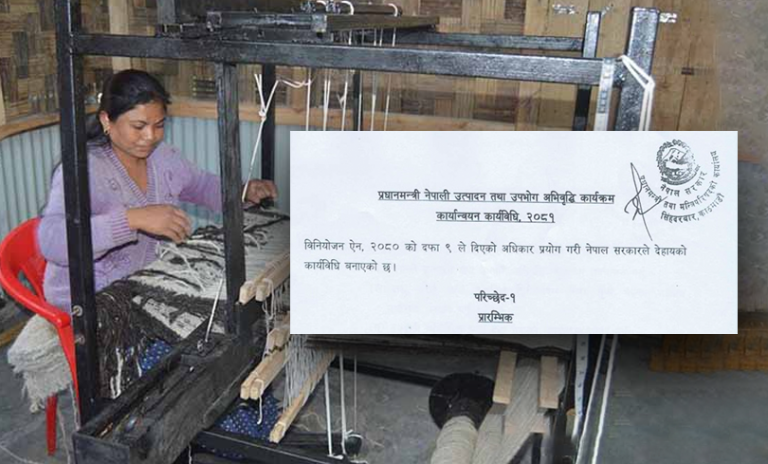 प्रधानमन्त्री नेपाली उत्पादन तथा उपभोग अभिवृद्धि कार्यक्रम
कार्यान्वयन कार्यविधि, २०८१
विनियोजन ऐन, २०८० को दफा ९ ले दिएको अधिकार प्रयोग गरी नेपाल सरकारले देहायको
कार्यविधि बनाएको छ।
परिच्छेद-१
प्रारम्भिक
नेपाल सरकार
प्रधानमन्त्री तथा मन्त्रिपरिषद्को कार्यालय
सिंहदरबार, काठमाडौं